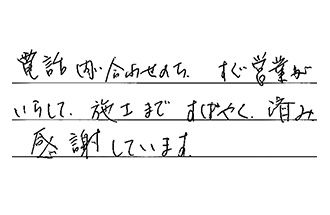 電話問い合わせのち、すぐ営業が
いらして、施工まですばやく、済み
感謝しています。